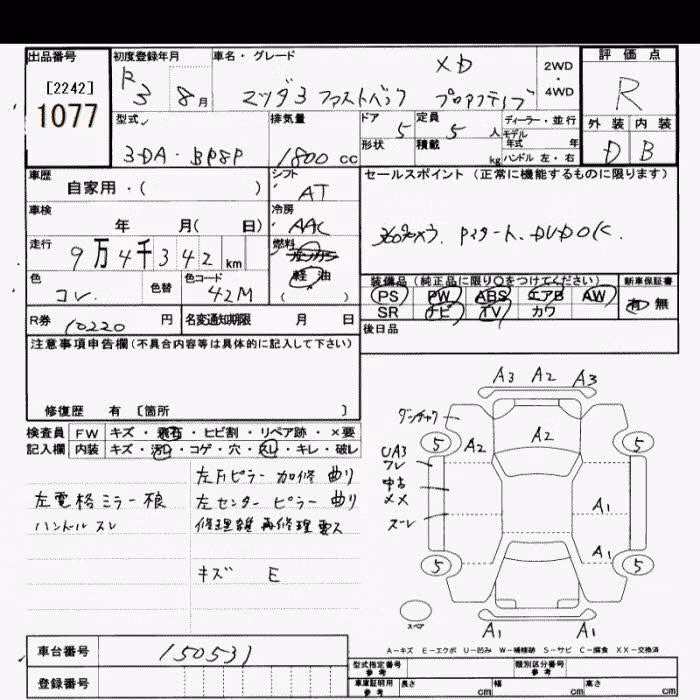 出品番号 初度登録年月 車名・グレード 評価点
[2242]
1077
R3 8月
XD
マツダ3 ファストバック プロアクティブ
2WD
・
4WD
R
外装 内装
D B
型式 排気量 ドア 定員 ディーラー・並行
3DA・BP8P 1800cc 5 5人 モデル
年式 年
形状 積載 kg ハンドル 左・右
車歴 シフト セールスポイント(正常に機能するものに限ります)
自家用・( ) AT
車検 冷房
年 月( 日) AAC
360°カメラ. Pスタート. DVD OK.
走行 燃料
9万4千342km
軽油
( )
色 色替 色コード
コン. 42M
装備品(純正品に限り○をつけてください) 新車保証書
PS PW ABS エアB AW 有 無
SR ナビ TV カワ
R券 10220円 名変通知期限 月 日
後日品
注意事項申告欄(不具合内容等は具体的に記入して下さい)
修復歴 有 [箇所 ]
検査員 FW キズ・飛石・ヒビ割・リペア跡・×要
記入欄 内装 キズ・汚レ・コゲ・穴・スレ・キレ・破レ
左Fピラー 加修 曲り
左電格ミラー根 左センターピラー 曲り
ハンドル スレ 修理雑 再修理要ス
キズ E
A3 A2 A3
A2
A2
5 5
UA3
中古
XX
ズレ
A1
A1
5 5
スペア
A1 A1
A−キズ E−エクボ U−凹み W−補修跡 S−サビ C−腐食 XX−交換済
車台番号 150531
登録番号
型式指定番号 参考 類別区分番号 参考
車庫証明用 参考 長さ cm 幅 cm 高さ cm